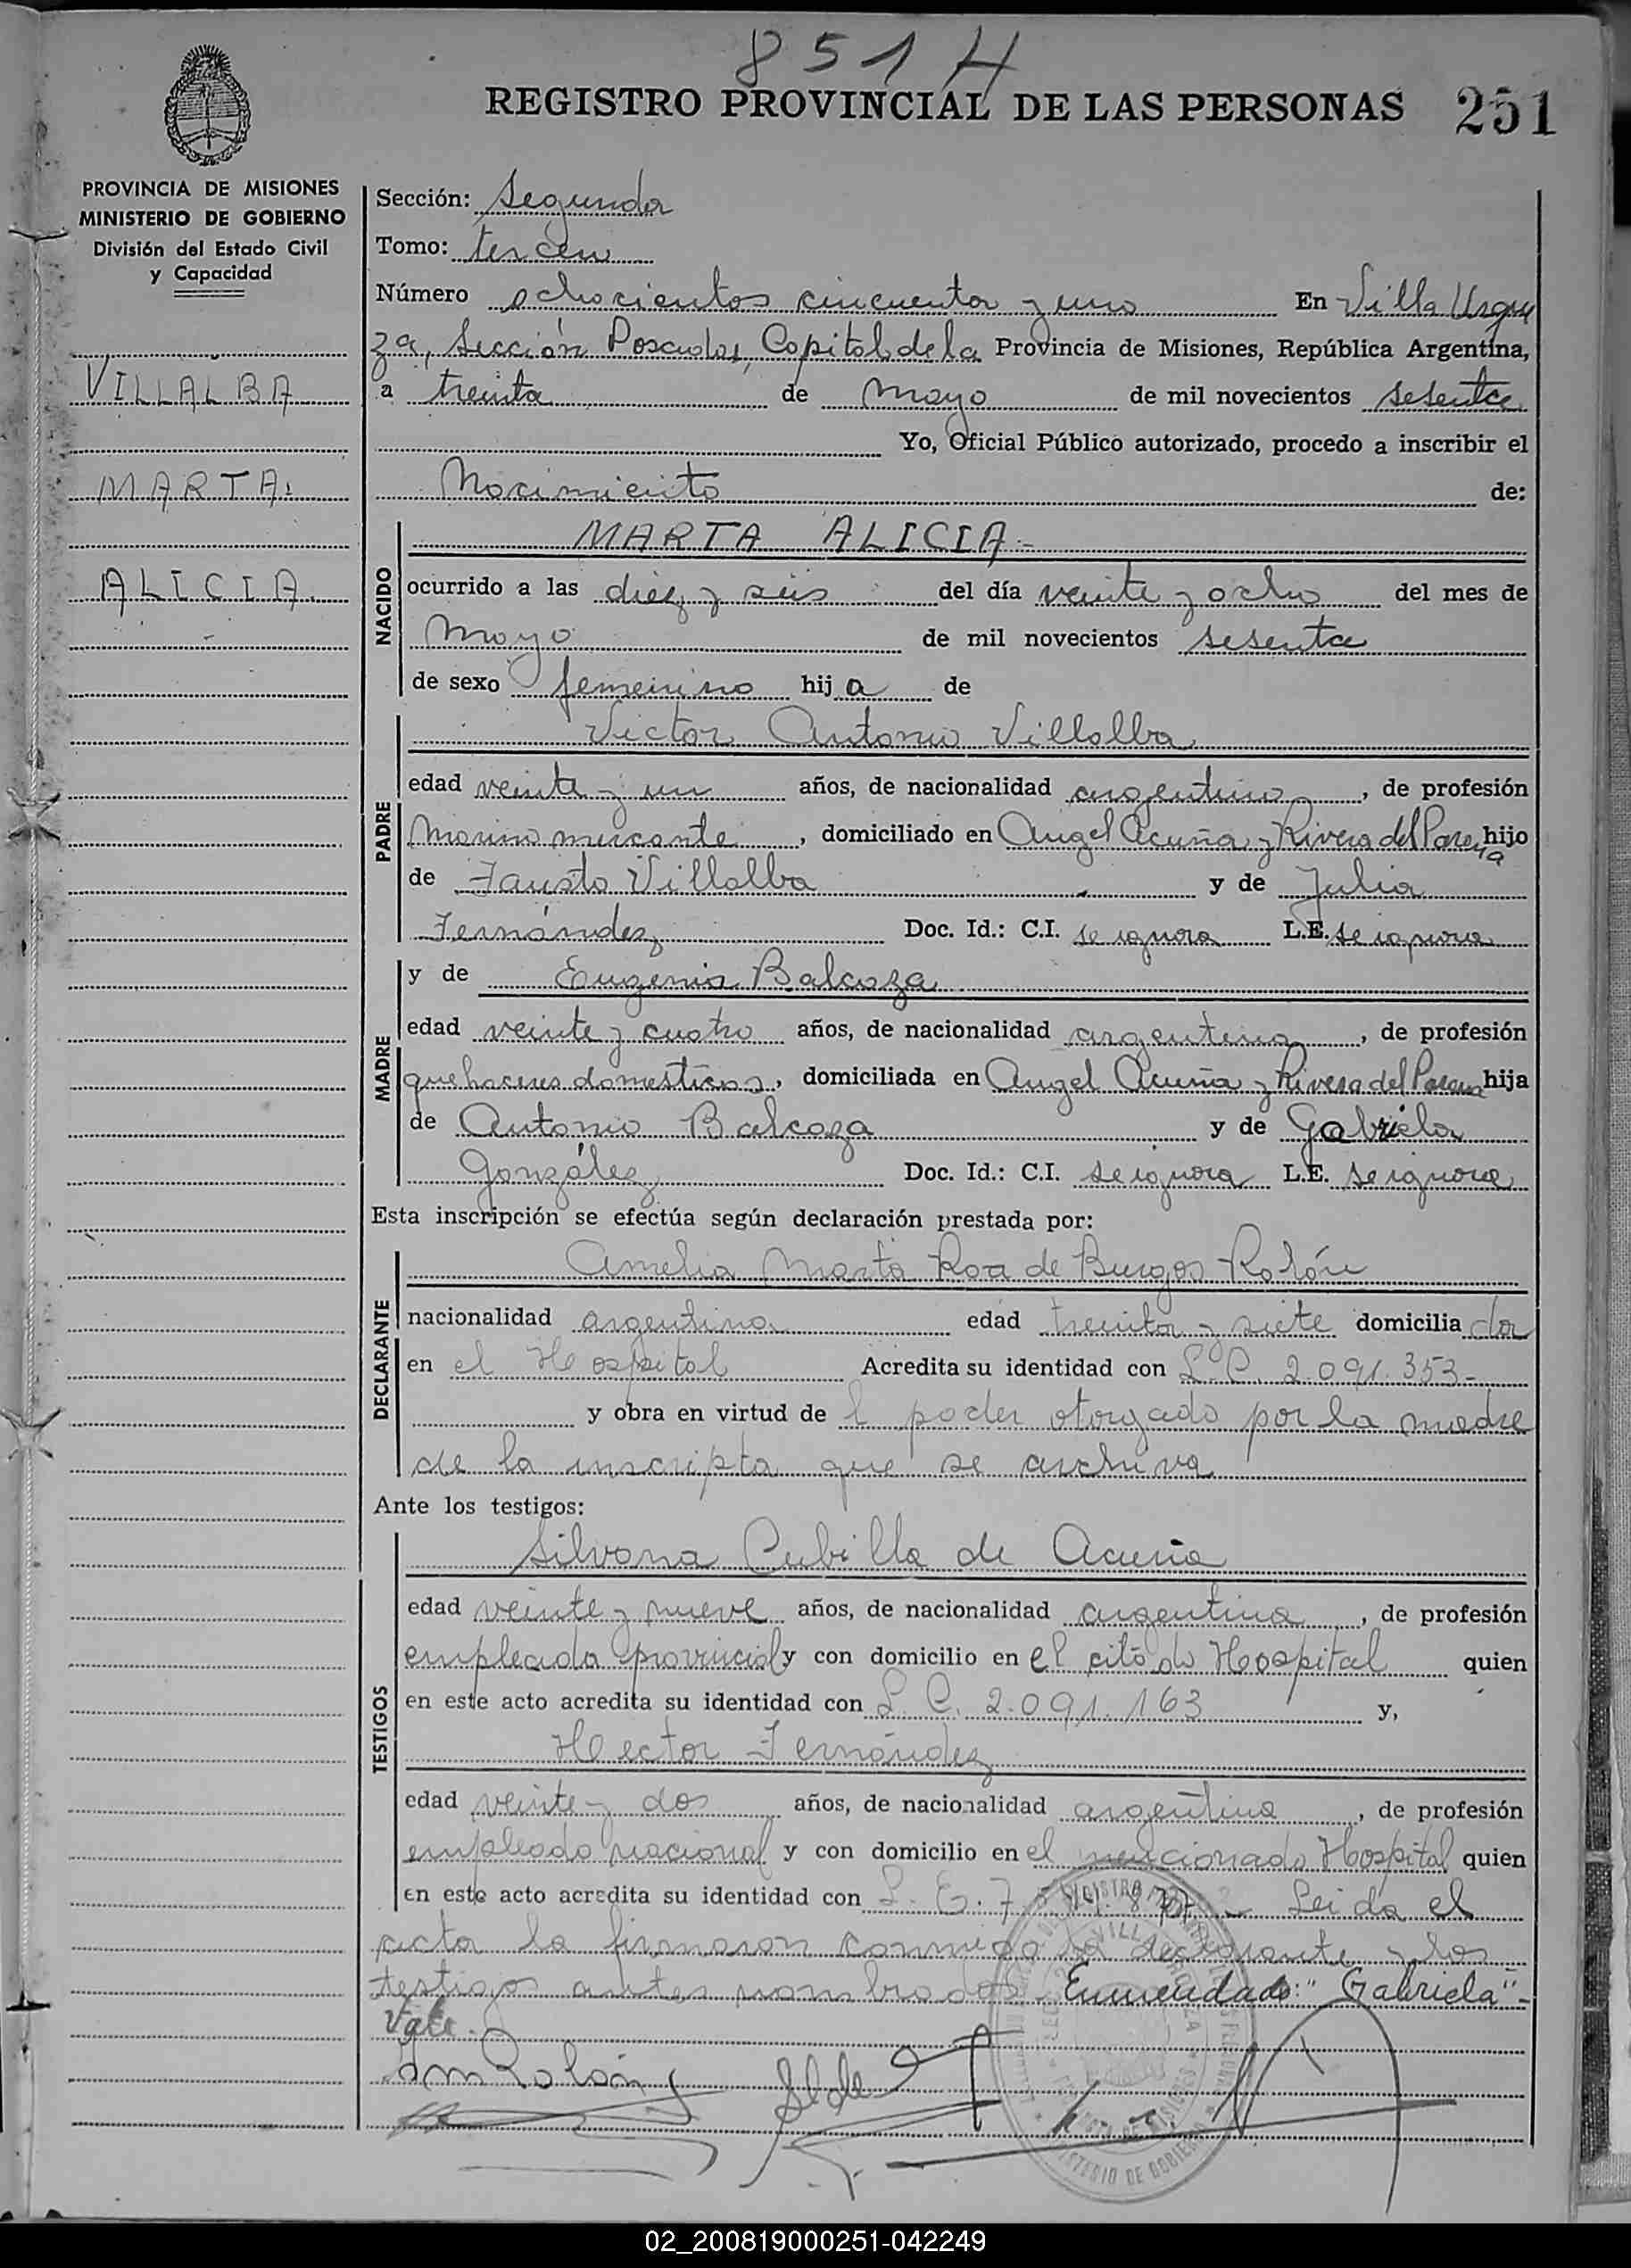 851 H
REGISTRO PROVINCIAL DE LAS PERSONAS 251
PROVINCIA DE MISIONES
MINISTERIO DE GOBIERNO
División del Estado Civil
y Capacidad
VILLALBA
MARTA
ALICIA.
Sección: Segunda
Tomo: tercero
Número ochocientos cincuenta y uno En Villa Urqui
za, Sección Posadas, Capital de la Provincia de Misiones, República Argentina,
a treinta de mayo de mil novecientos sesenta
Yo, Oficial Público autorizado, procedo a inscribir el
Nacimiento de:
NACIDO
MARTA ALICIA.-
ocurrido a las diez y seis del día veinte y ocho del mes de
Mayo de mil novecientos sesenta
de sexo femenino hija de
PADRE
Victor Antonio Villalba
edad veinte y un años, de nacionalidad argentino, de profesión
Marino mercante, domiciliado en Angel Acuña y Rivera del Parana hijo
de Fausto Villalba y de Julia
Fernández Doc. Id.: C.I. se ignora L.E. se ignora
MADRE
y de Eugenia Balcaza
edad veinte y cuatro años, de nacionalidad argentina, de profesión
quehaceres domesticos, domiciliada en Angel Acuña y Rivera del Parana hija
de Antonio Balcaza y de Gabriela
González Doc. Id.: C.I. se ignora L.E. se ignora
Esta inscripción se efectúa según declaración prestada por:
DECLARANTE
Amelia Marta Roa de Burgos Rolón
nacionalidad argentina edad treinta y siete domiciliada
en el Hospital Acredita su identidad con L.C. 2.091.353-
y obra en virtud de l poder otorgado por la madre
de la inscripta que se archiva
Ante los testigos:
TESTIGOS
Silvana Cubilla de Acuña
edad veinte y nueve años, de nacionalidad argentina, de profesión
empleada provincial y con domicilio en el citado Hospital quien
en este acto acredita su identidad con L.C. 2.091.163 y,
Hector Fernández
edad veinte y dos años, de nacionalidad argentina, de profesión
empleado nacional y con domicilio en el mencionado Hospital quien
en este acto acredita su identidad con L.E. Leida el
acta la firmaron conmigo la declarante y los
testigos antes nombrados. Enmendado: "Gabriela"-
Vale.
Am Rolón
MINISTERIO DE GOBIERNO
02_200819000251-042249